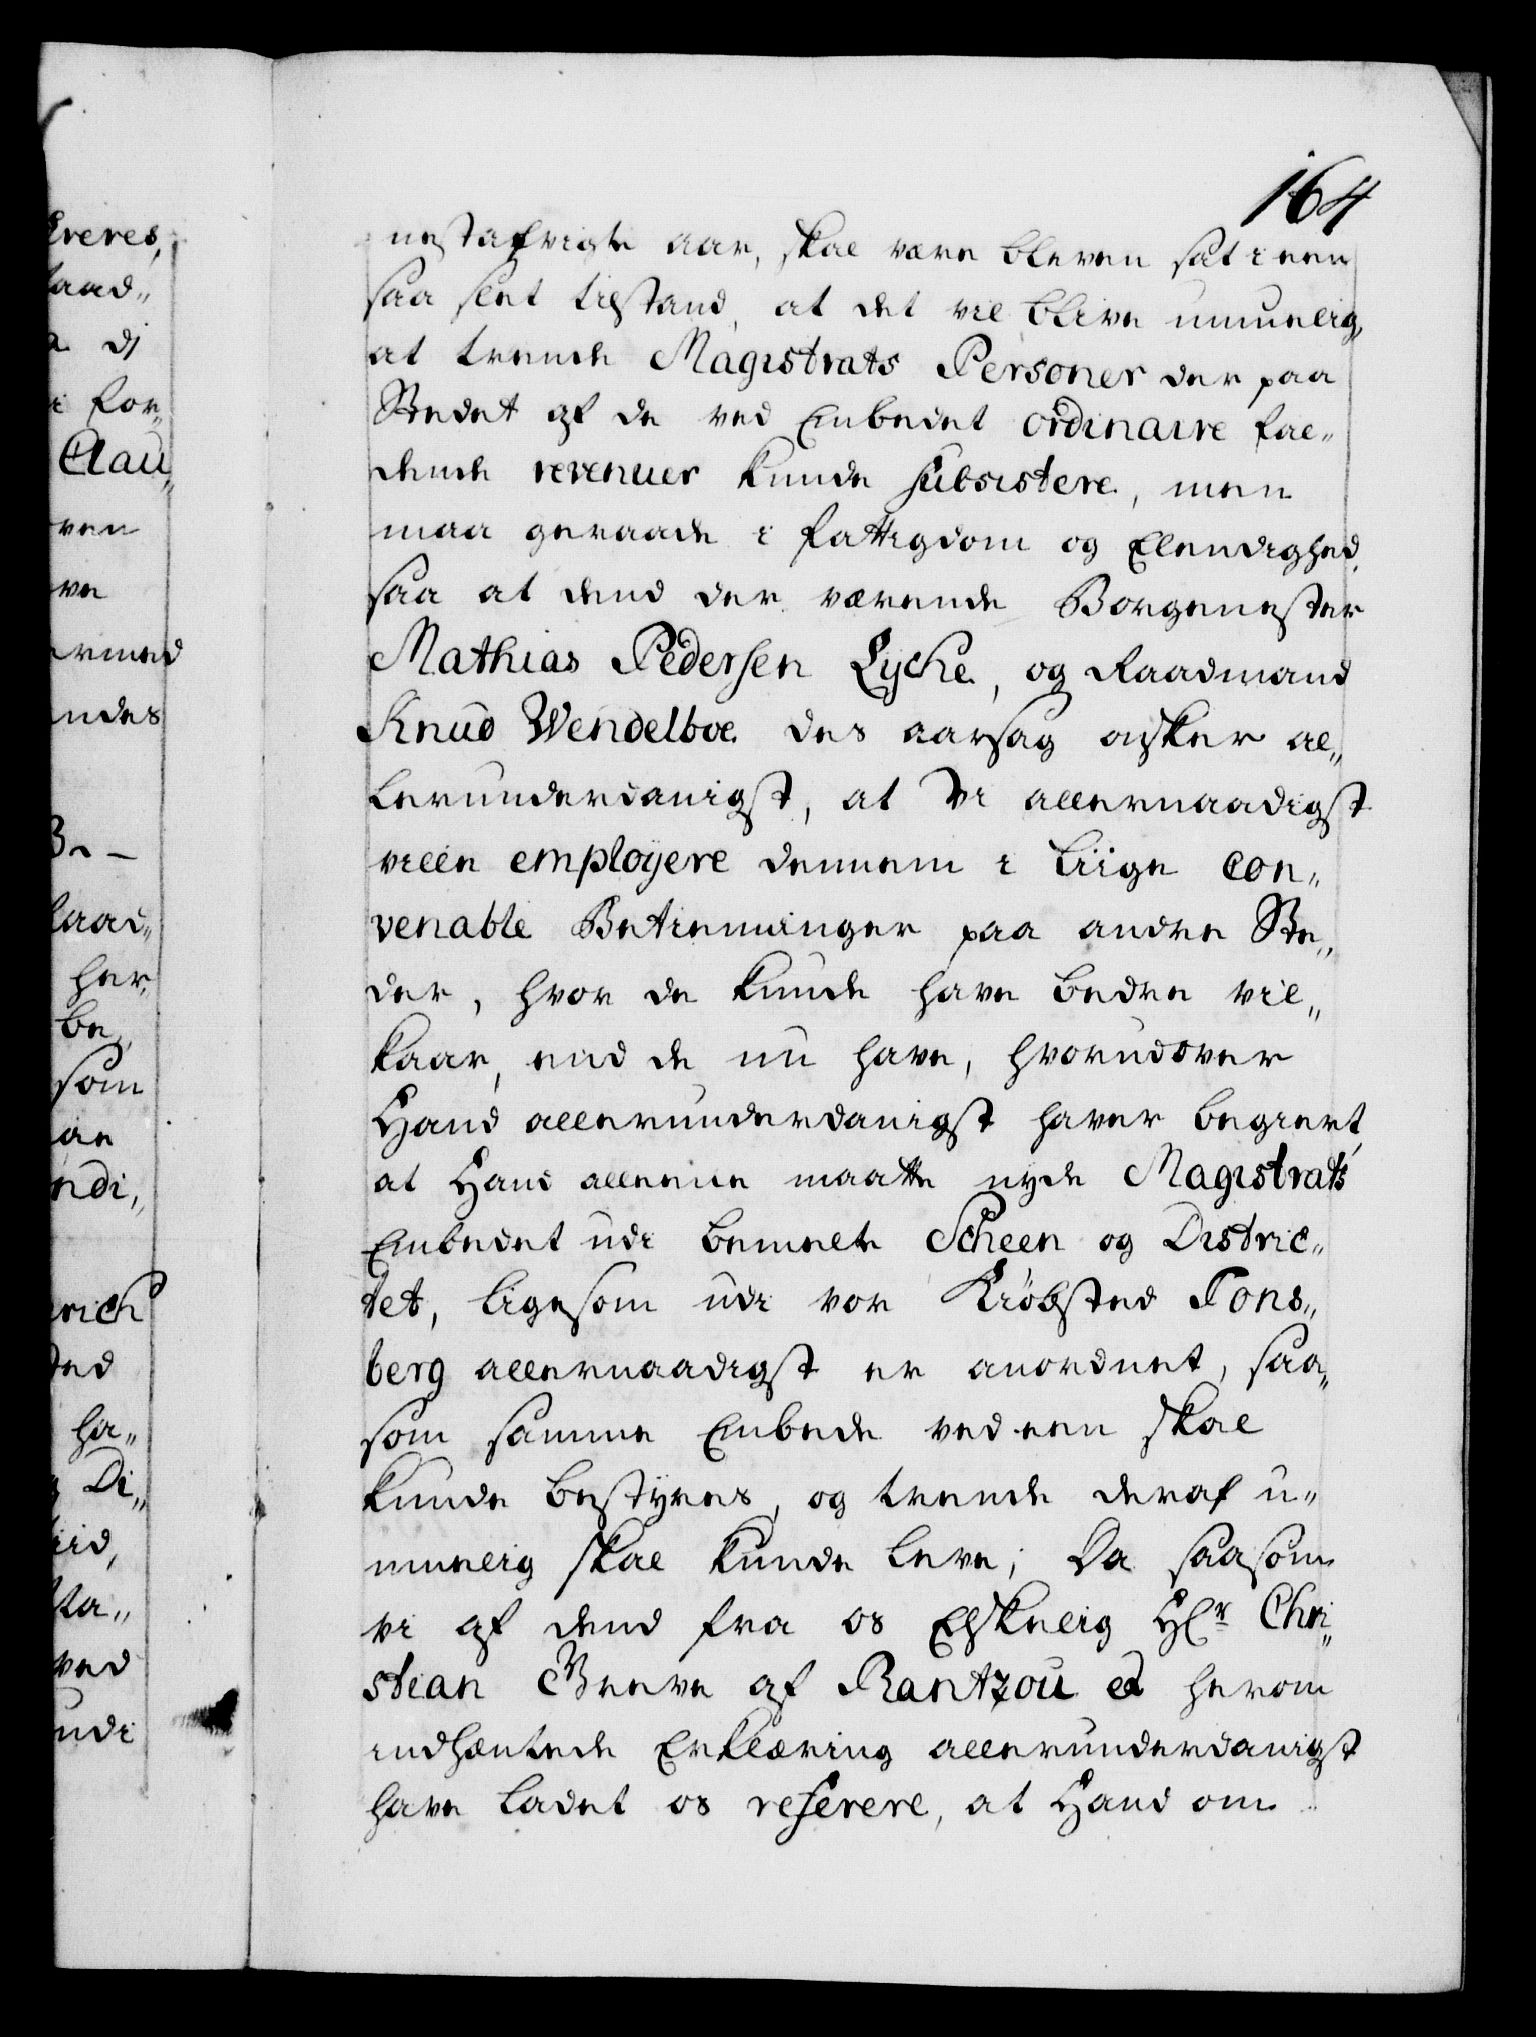 164
nestafvigte aar, skal være bleven sat i een
saa slet tilstand, at det vil blive umuelig,
at trende Magistrats Personer der paa
Stedet af de ved Embedet ordinaire fal„
dende revenuer kunde subsistere, men
maa geraade i fattigdom og Elendighed,
saa at dend der værende Borgemester
Mathias Pedersen Lyche, og Raadmand
Knud Wendelboe des aarsag ønsker al„
lerunderdanigst, at Vi allernaadigst
ville employere dennem i liige con„
venable Betieninger paa andre Ste„
der, hvor de kunde have bedre vil„
kaar, end de nu have, hvorudover
Hand allerunderdanigst haver begiert,
at Hand allene maatte nyde Magistrats
Embedet udi bemelte Scheen og Distric„
tet, ligesom udi vor Kiøbsted Tons„
berg allernaadigst er anordnet, saa„
som samme Embede ved een skal
kunde bestyres, og trende deraf u„
muelig skal kunde leve; Da saasom
vi af dend fra os Elskelig Hr Chri„
stian Greve af Rantzou &c herom
indhæntede Erklæring allerunderdanigst
have ladet os referere, at Hand om